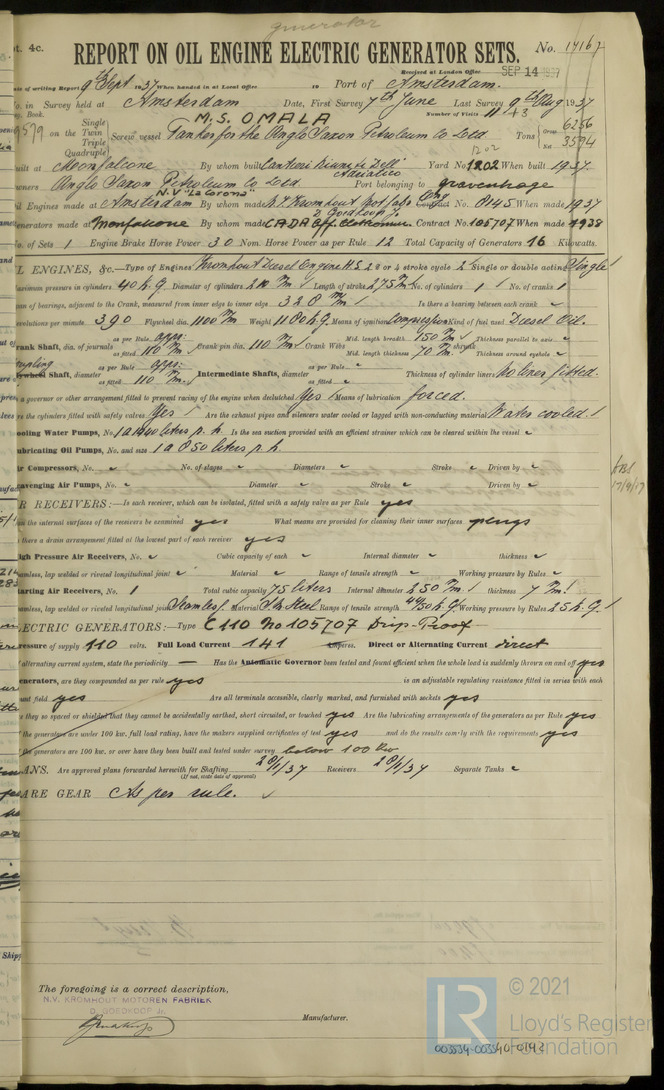 generator
pt. 4c.
REPORT ON OIL ENGINE ELECTRIC GENERATOR SETS.
No. 17167
Received at London Office SEP 14 1937
Date of writing Report 9th Sept 1937 When handed in at Local Office 19 Port of Amsterdam.
No. in Survey held at Amsterdam Date, First Survey 7th June Last Survey 9th Aug 1937
Reg. Book. Number of Visits 11+3
M.S. OMALA
on the Single Twin Triple Quadruple Screw vessel Tanker for the Anglo Saxon Petroleum Co Ltd. Tons Gross 6256 Net 3594
1202
Built at Monfalcone By whom built Cantieri Riuniti Dell' Adriatico Yard No. 1202 When built 1937.
Owners Anglo Saxon Petroleum Co Ltd. Port belonging to gravenhage
N.V. "La Corona"
Oil Engines made at Amsterdam By whom made Contract No. 8145 When made 1937
Generators made at Monfalcone By whom made Contract No. 105707 When made 1938
No. of Sets 1 Engine Brake Horse Power 30 Nom. Horse Power as per Rule 12 Total Capacity of Generators 16 Kilowatts.
OIL ENGINES, &c.—Type of Engines Kromhout Diesel Engine H.S. 2 or 4 stroke cycle 2 Single or double acting Single
Maximum pressure in cylinders 40 k.g. Diameter of cylinders Length of stroke 275 m/m No. of cylinders 1 No. of cranks 1
Span of bearings, adjacent to the Crank, measured from inner edge to inner edge 328 m/m Is there a bearing between each crank
Revolutions per minute 390 Flywheel dia. 1100 m/m Weight 1180 k.g. Means of ignition Compression Kind of fuel used Diesel Oil.
Crank Shaft, dia. of journals as per Rule appr: as fitted 110 m/m Crank pin dia. 110 m/m Crank Webs Mid. length breadth 150 m/m Mid. length thickness 70 m/m Thickness parallel to axis shrunk Thickness around eyehole
Coupling
Flywheel Shaft, diameter as per Rule appr: as fitted 110 m/m Intermediate Shafts, diameter as per Rule as fitted Thickness of cylinder liners No liner fitted.
Is a governor or other arrangement fitted to prevent racing of the engine when declutched Yes Means of lubrication forced.
Are the cylinders fitted with safety valves Yes Are the exhaust pipes and silencers water cooled or lagged with non-conducting material Water cooled
Cooling Water Pumps, No. 1 a 1440 liters p.h. Is the sea suction provided with an efficient strainer which can be cleared within the vessel
Lubricating Oil Pumps, No. and size 1 a 850 liters p.h.
Air Compressors, No. No. of stages Diameters Stroke Driven by
Scavenging Air Pumps, No. Diameter Stroke Driven by
AIR RECEIVERS:—Is each receiver, which can be isolated, fitted with a safety valve as per Rule yes
Can the internal surfaces of the receivers be examined yes What means are provided for cleaning their inner surfaces plugs
Is there a drain arrangement fitted at the lowest part of each receiver yes
High Pressure Air Receivers, No. Cubic capacity of each Internal diameter thickness
Seamless, lap welded or riveted longitudinal joint Material Range of tensile strength Working pressure by Rules
Starting Air Receivers, No. 1 Total cubic capacity 75 liters Internal diameter 250 m/m thickness 7 m/m
Seamless, lap welded or riveted longitudinal joint Seamless Material S.M. Steel Range of tensile strength 44/50 k.g. Working pressure by Rules 25 k.g.
ELECTRIC GENERATORS:—Type C 110 No 105707 Drip-Proof
Pressure of supply 110 volts. Full Load Current 141 Amperes. Direct or Alternating Current direct
If alternating current system, state the periodicity — Has the Automatic Governor been tested and found efficient when the whole load is suddenly thrown on and off yes
Generators, are they compounded as per rule yes is an adjustable regulating resistance fitted in series with each
shunt field yes Are all terminals accessible, clearly marked, and furnished with sockets yes
Are they so spaced or shielded that they cannot be accidentally earthed, short circuited, or touched yes Are the lubricating arrangements of the generators as per Rule yes
If the generators are under 100 kw. full load rating, have the makers supplied certificates of test yes and do the results comply with the requirements yes
If the generators are 100 kw. or over have they been built and tested under survey below 100 Kw
PLANS. Are approved plans forwarded herewith for Shafting 28/1/37 Receivers 28/1/37 Separate Tanks
(If not, state date of approval)
SPARE GEAR As per rule.
The foregoing is a correct description,
N.V. KROMHOUT MOTOREN FABRIEK
D. GOEDKOOP Jr.
Manufacturer.
LR
© 2021
Lloyd's Register
Foundation